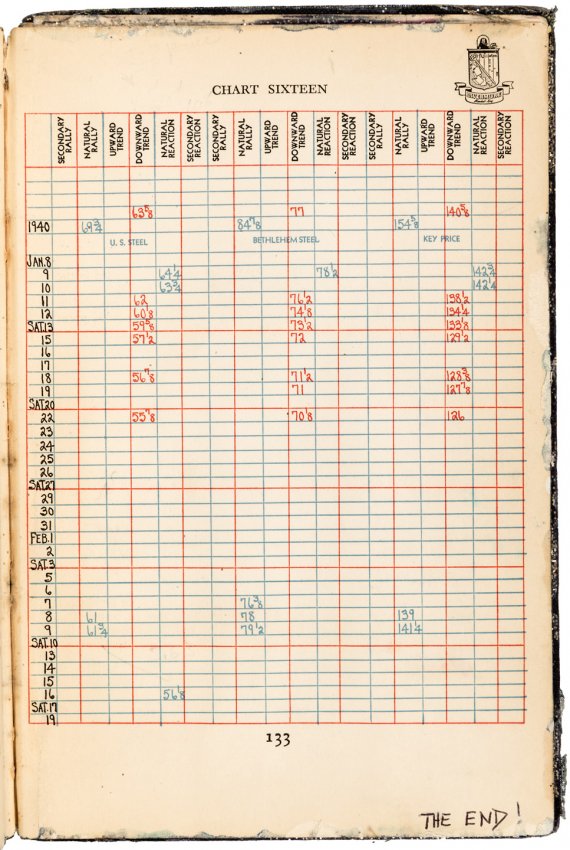 CHART SIXTEEN
LIVERMORE
SECONDARY RALLY NATURAL RALLY UPWARD TREND DOWNWARD TREND NATURAL REACTION SECONDARY REACTION SECONDARY RALLY NATURAL RALLY UPWARD TREND DOWNWARD TREND NATURAL REACTION SECONDARY REACTION SECONDARY RALLY NATURAL RALLY UPWARD TREND DOWNWARD TREND NATURAL REACTION SECONDARY REACTION
63 5/8 77 140 5/8
1940 69 3/4 84 7/8 154 5/8
U. S. STEEL BETHLEHEM STEEL KEY PRICE
JAN. 8
9 64 1/4 78 1/2 142 3/4
10 63 3/4 142 1/4
11 62 76 1/2 138 1/2
12 60 1/8 74 1/8 134 1/4
SAT.13 59 5/8 73 1/2 133 1/8
15 57 1/2 72 129 1/2
16
17
18 56 7/8 71 1/2 128 3/8
19 71 127 7/8
SAT.20
22 55 7/8 70 1/8 126
23
24
25
26
SAT.27
29
30
31
FEB.1
2
SAT.3
5
6
7 76 3/8
8 61 78 139
9 61 3/4 79 1/2 141 1/4
SAT.10
13
14
15
16 56 1/8
SAT.17
19
133
THE END!